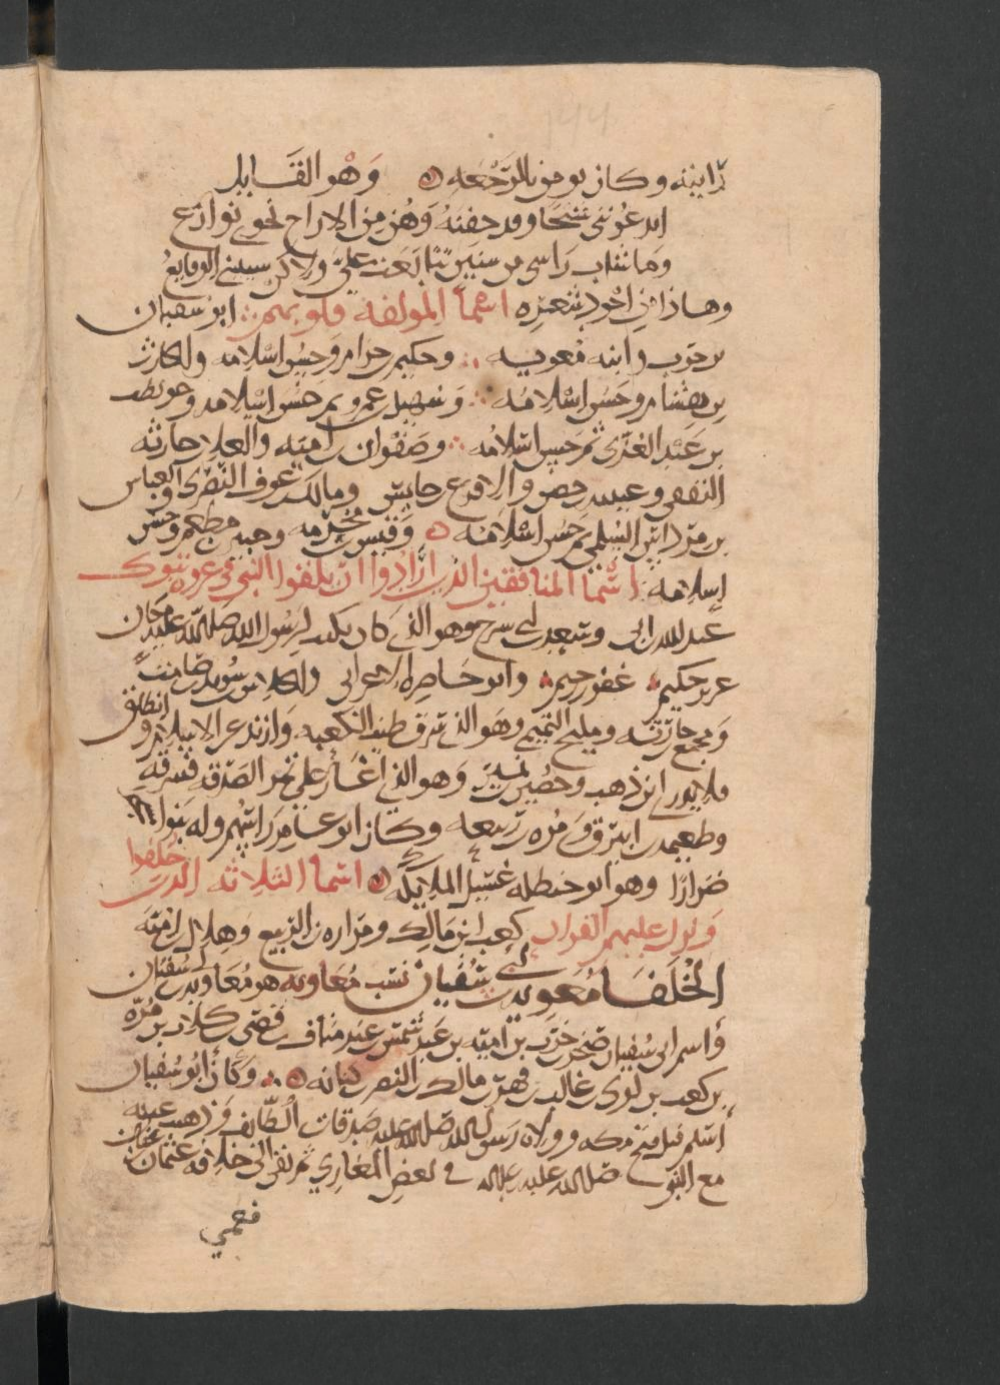 رابيته وكان يومن بالرجعه وهو القايل
ايدعونني شيخا وقد عشت حقبة وهن من الازواج نحوي نوازع
وما شاب راسي من سنين تتابعت علي ولاكن شيبتني الوقايع
وهاذا من اجود شعره اسما المولفه قلوبهم ابو سفيان
بن حرب وابنه معويه وحكيم بن حزام وحسن اسلامه والحارث
بن هشام وحسن اسلامه وسهيل بن عمرو ثم حسن اسلامه وحويطب
بن عبد العزى ثم حسن اسلامه وصفوان بن اميه والعلا بن حارثه
الثقفي وعيينه بن حصن والاقرع بن حابس ومالك بن عوف النصرى والعباس
بن مرداس السلمي ثم حسن اسلامه وقيس بن مخرمه وجبير بن مطعم وحسن
اسلامه اسما المنافقين الذين ارادوا ان يلقوا النبي في غزوه تبوك
عبد الله بن ابى وسعد بن ابي سرح وهو الذي كان يكتب لرسول الله صلى الله عليه مكان
عزيز حكيم غفور رحيم وابو حاصر الاعرابى والجلاس بن سويد بن صامت
ومجمع بن حارثه ومليح التميمي وهو الذي سرق طيب الكعبه وارتد عن الاسلام وانطلق
فلا يدرى اين ذهب وحصين بن نمير وهو الذي اغار على تمر الصدقه فسرقه
وطعيمه بن ابيرق ومره بن ربيعه وكان ابو عامر راسهم وله بنوا
ضرارا وهو ابو حنظله غسيل الملايكه اسما الثلاثه الذين خلفوا
ونزل عليهم القران كعب ابن مالك ومراره بن الربيع وهلال بن اميه
الخلفا معويه بن ابي سفيان نسب معاويه هو معاويه بن ابي سفيان
واسم ابى سفيان صخر بن حرب بن اميه بن عبد شمس بن عبد مناف بن قصى بن كلاب بن مره
بن كعب بن لوى بن غالب بن فهر بن مالك بن النضر بن كنانه وكان ابو سفيان
اسلم قبل فتح مكه وولاه رسول الله صلى الله عليه صدقات الطايف وذهبت عينه
مع النبي صلى الله عليه وعلى اله في بعض المغازي ثم بقى الى خلافه عثمان بن عفان
فعمي